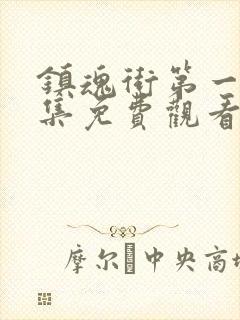 鎮魂街第一
集免費觀看
摩尔中央高